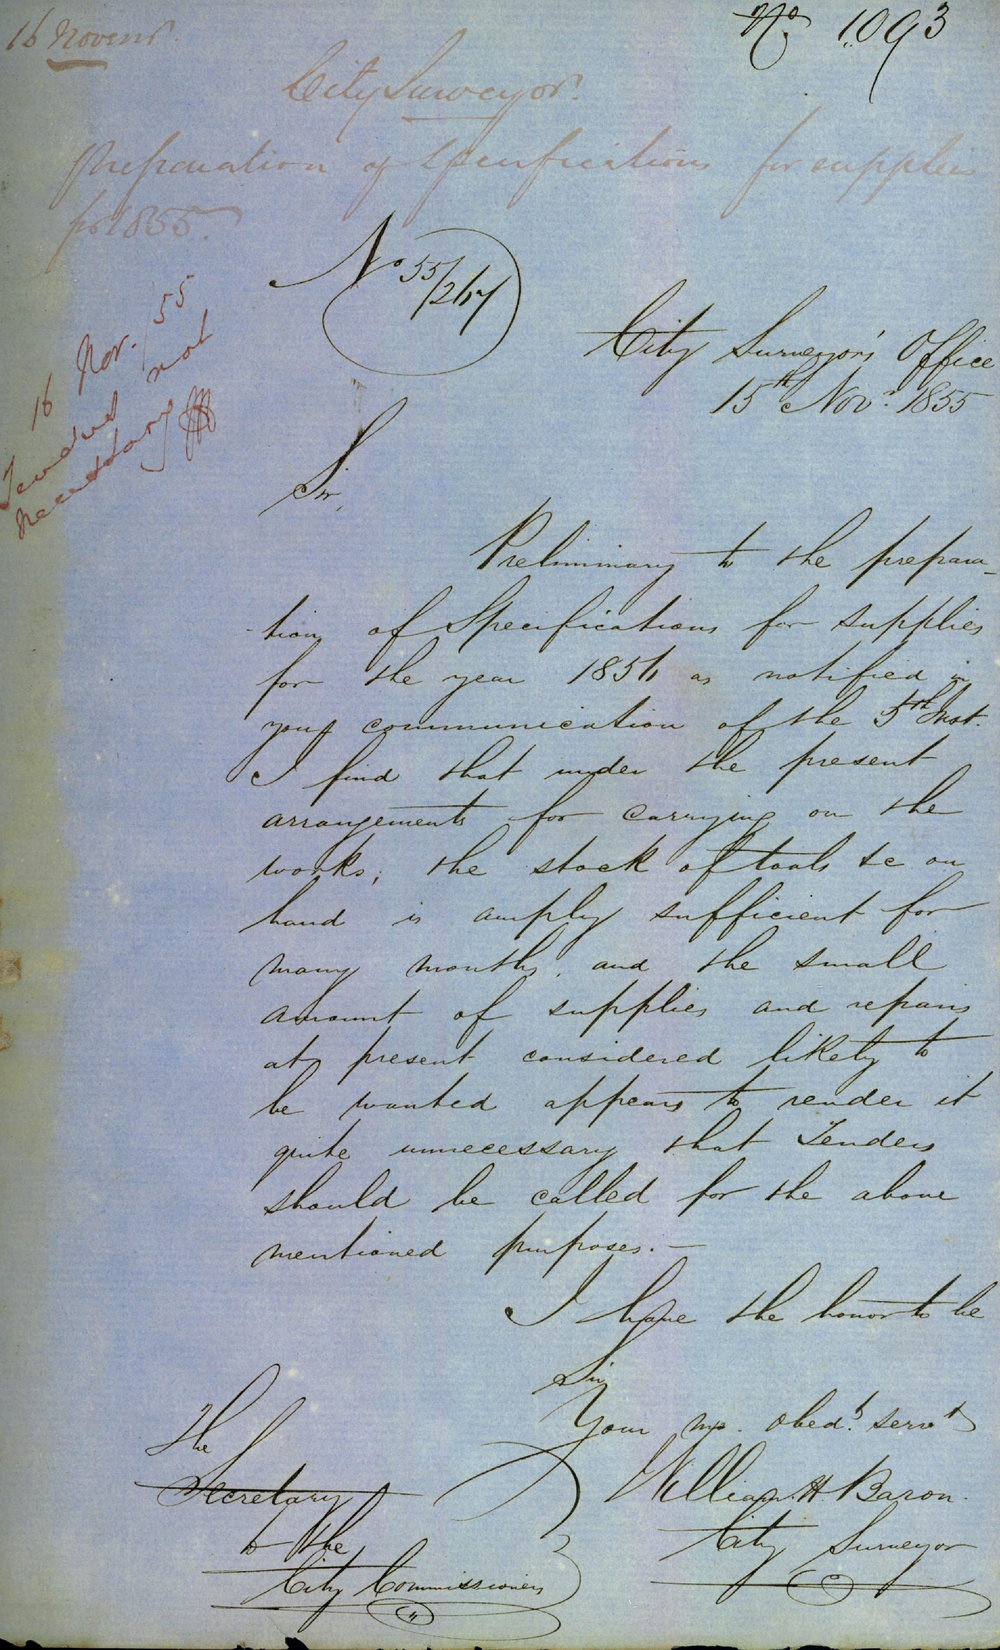 16 Novemr.
No. 1093
City Surveyor.
Preparation of Specifications for supplies
for 1855.
No 55/267
16 Nov. /55
Tenders not
necessary
City Surveyor's Office
15th Nov. 1855
Sir,
Preliminary to the prepara-
tion of Specifications for supplies
for the year 1856 as notified in
your communication of the 5th Inst.
I find that under the present
arrangements for carrying on the
works, the stock of tools &c on
hand is amply sufficient for
many months, and the small
amount of supplies and repairs
at present considered likely to
be wanted appears to render it
quite unnecessary that Tenders
should be called for the above
mentioned purposes.—
I have the honor to be
Sir
Your mo. obedt. servt
William H Baron.
City Surveyor
The
Secretary
to the
City Commissioners